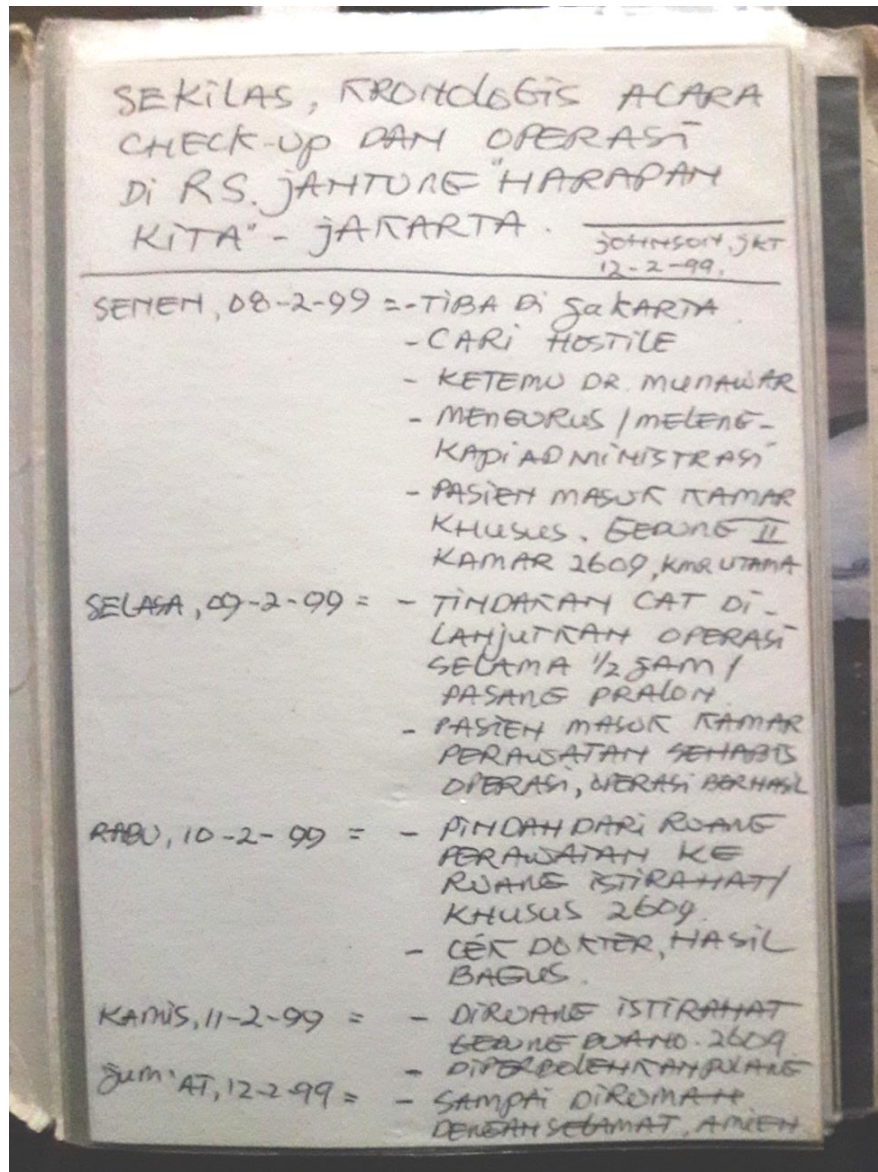 SEKiLAS, KRONOLOGiS ACARA
CHECK-UP DAN OPERASi
Di RS. jANTUNG "HARAPAN
KiTA" - jAKARTA.
jOHNSON, jKT
12-2-99.
SENEN, 08-2-99 = - TiBA Di jaKARTA
- CARi HOSTiLE
- KETEMU DR. MUNAWAR
- MENGURUS / MELENG-
KAPi ADMiNiSTRASi
- PASiEN MASUK KAMAR
KHUSUS. GEDUNG II
KAMAR 2609, KMR UTAMA
SELASA, 09-2-99 = - TiNDAKAN CAT Di-
LANjUTKAN OPERASi
SELAMA 1/2 jAM /
PASANG PRALON
- PASiEN MASUK KAMAR
PERAWATAN SEHABiS
OPERASi, OPERASi BERHASiL
RABU, 10-2-99 = - PiNDAH DARi RUANG
PERAWATAN KE
RUANG iSTiRAHAT/
KHUSUS 2609.
- CEK DOKTER, HASiL
BAGUS.
KAMiS, 11-2-99 = - DiRUANG iSTiRAHAT
GEDUNG DUA NO. 2609
- DiPERBOLEHKAN PULANG
jUM'AT, 12-2-99 = - SAMPAi DiRUMAH
DENGAN SELAMAT, AMiEN